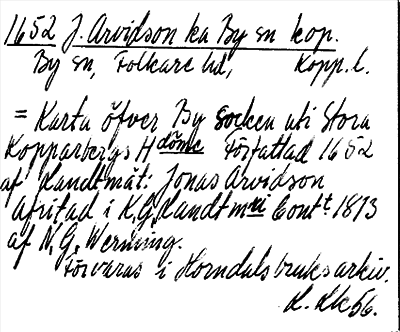 1652 J. Arvidson ka By sn kop.
By sn, Folkare hd, Kopp. l.
= Karta öfver By socken uti Stora
Kopparbergs Hdöme Författad 1652
af Landtmät: Jonas Arvidson
afritad i K. G. Landtmri Contt 1873
af N. G. Werming.
Förvaras i Horndals bruksarkiv.
56.